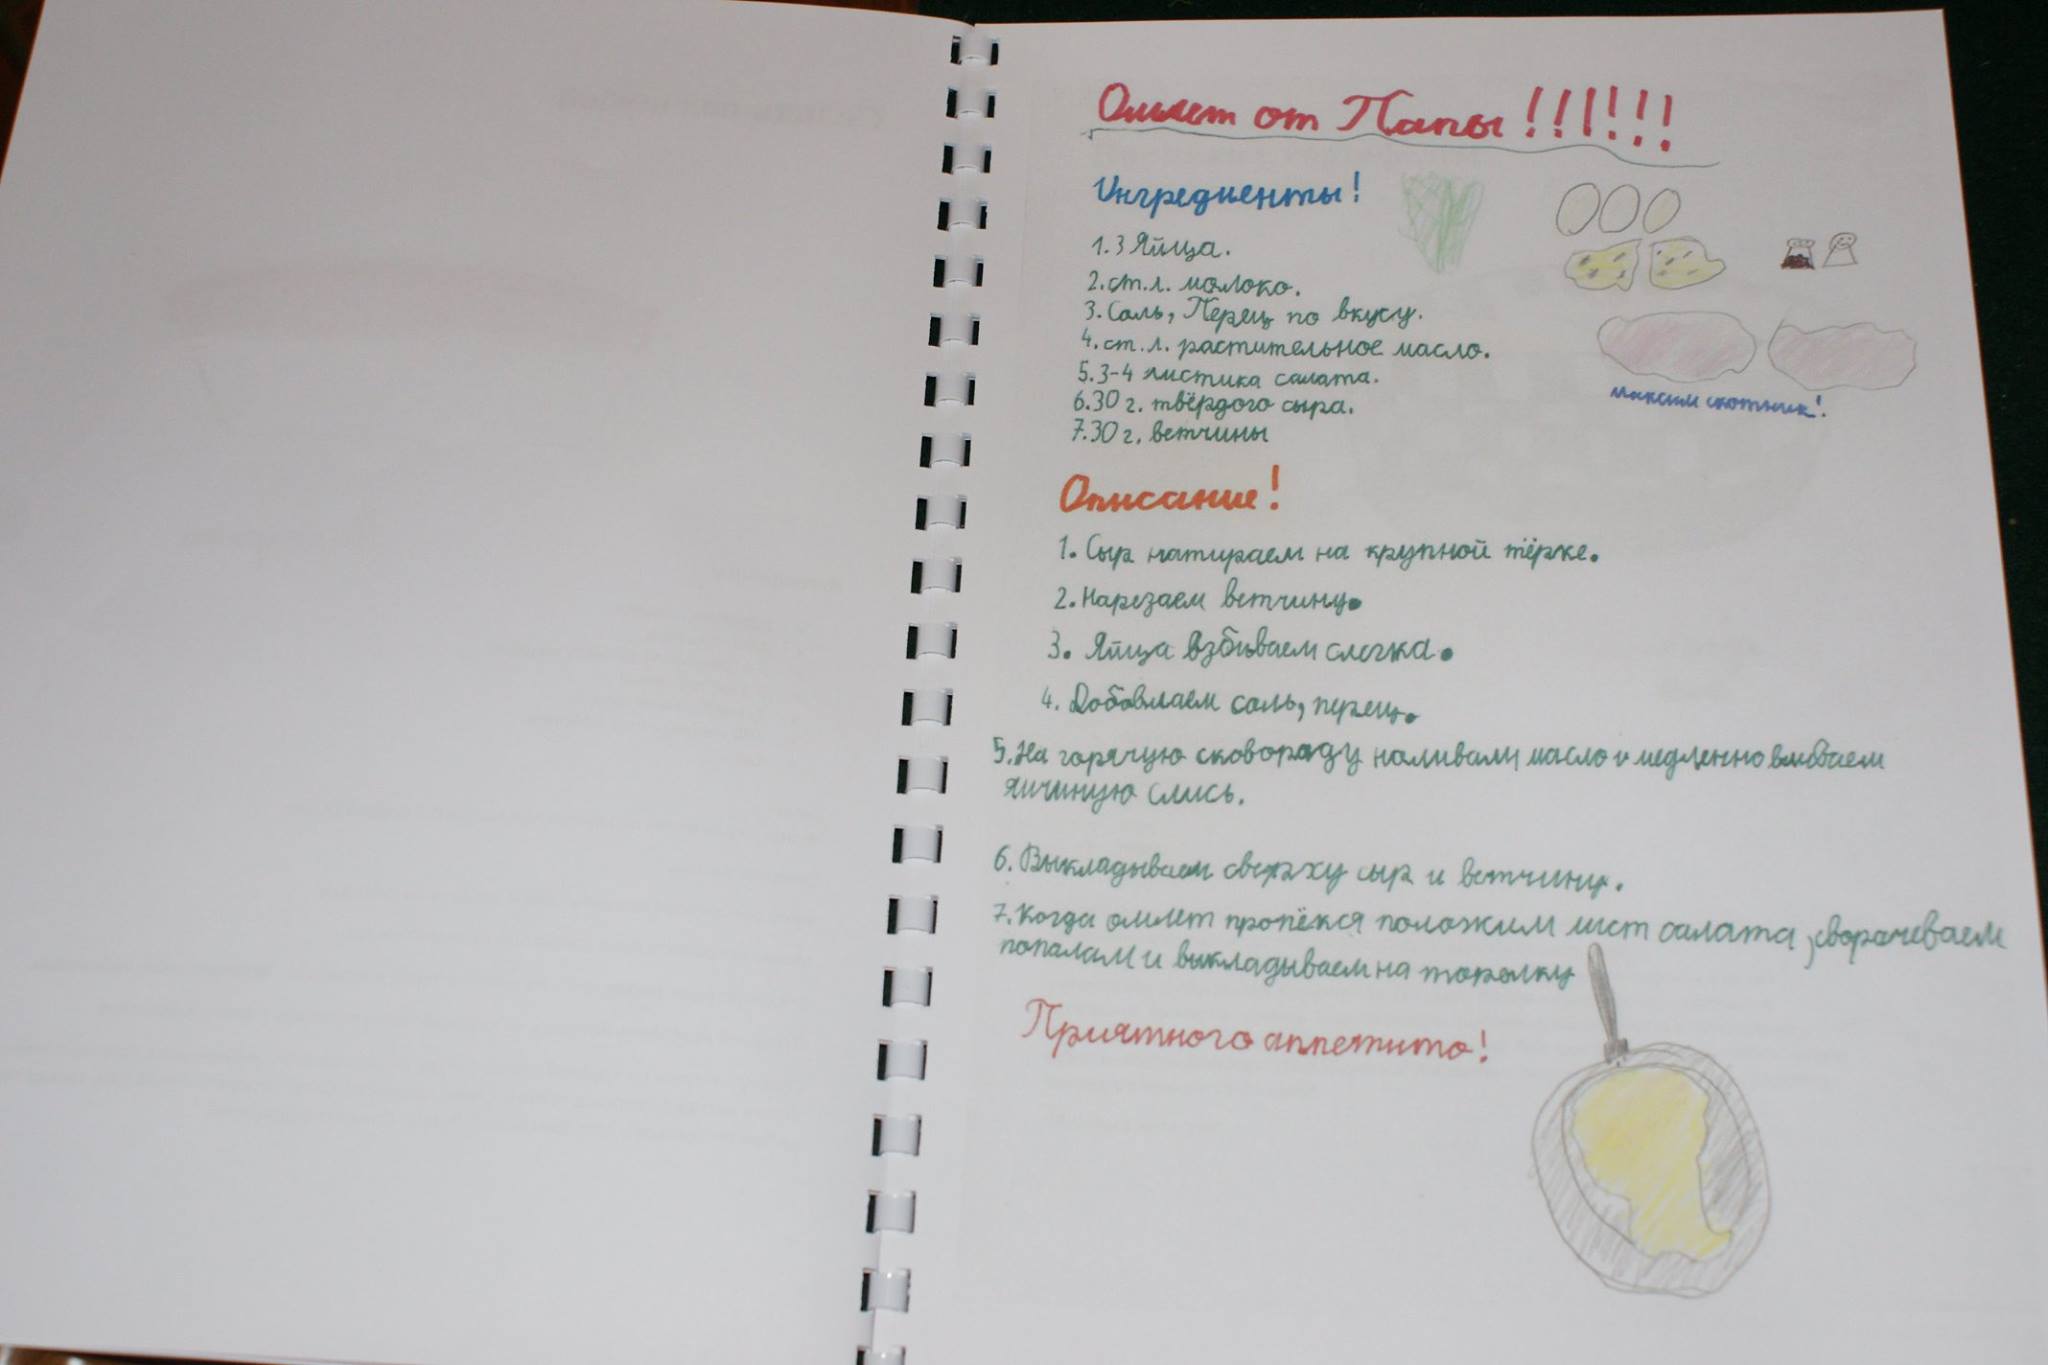 Омлет от Папы!!!!!!
Ингредиенты!
1. 3 Яйца.
2. ст. л. молоко.
3. Соль, Перец по вкусу.
4. ст. л. растительное масло.
5. 3-4 листика салата.
6. 30 г. твёрдого сыра.
7. 30 г. ветчины
максим скотник!
Описание!
1. Сыр натираем на крупной тёрке.
2. Нарезаем ветчину.
3. Яйца взбиваем слегка.
4. Добавлаем соль, перец.
5. На горячую сковораду наливали масло и медленно вливаем
яичиную смись.
6. Выкладываем сверху сыр и ветчину.
7. Когда омлет пропёкся положим лист салата, сворачеваем
попалам и выкладываем на торелку
Приятного аппетито!